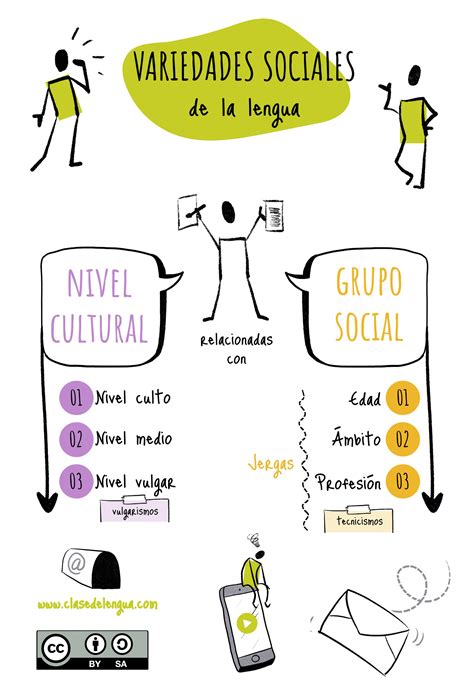 VARIEDADES SOCIALES
de la lengua
NIVEL
CULTURAL
GRUPO
SOCIAL
Relacionadas
con
01 Nivel culto
02 Nivel medio
03 Nivel vulgar
vulgarismos
Jergas
Edad 01
Ámbito 02
Profesión 03
tecnicismos
@
www.clasedelengua.com
cc
BY SA